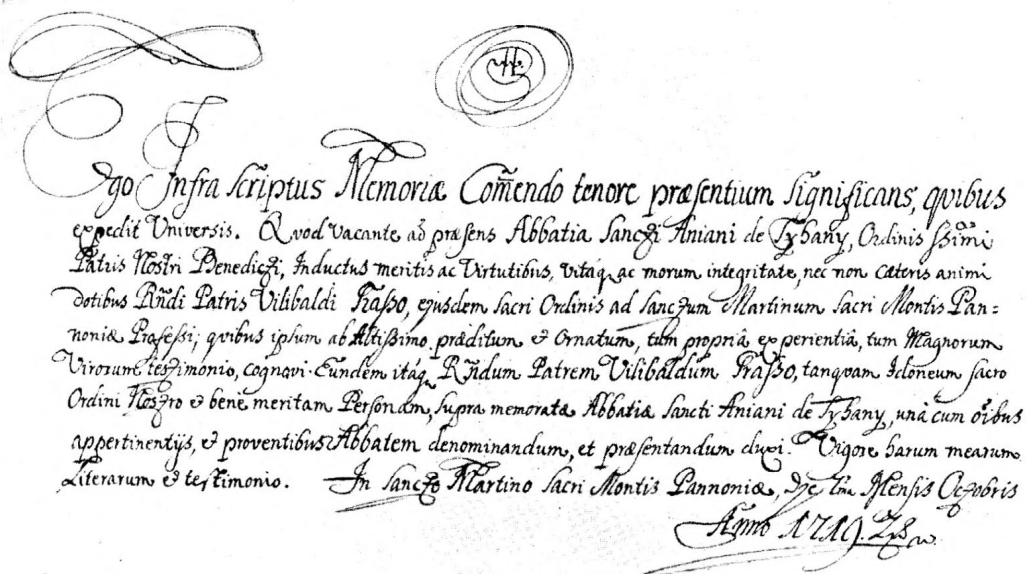 Ego Infra scriptus Memoriæ Com̃endo tenore præsentium significans, quibus
expedit Universis. Quod vacante ad præsens Abbatia Sancti Aniani de Tyhany, Ordinis SSimi
Patris Nostri Benedicti, Inductus meritis ac Virtutibus, vitæq ac morum integritate, nec non cæteris animi
dotibus Rñdi Patris Vilibaldi Grasso, ejusdem sacri Ordinis ad Sanctum Martinum sacri Montis Pan=
noniæ Professi; quibus ipsum ab Altissimo præditum et Ornatum, tum propriâ experientiâ, tum Magnorum
Virorum testimonio, cognovi. Eundem itaq Rñdum Patrem Vilibaldum Grasso, tanquam Idoneum sacro
Ordini Nostro et bene meritam Personam, supra memoratæ Abbatiæ Sancti Aniani de Tyhany, unà cum oĩbus
appertinentijs, et proventibus Abbatem denominandum, et præsentandum duxi. Vigore harum mearum
Literarum et testimonio. In Sancto Martino Sacri Montis Pannoniæ, Mensis Octobris
Anno 1719.